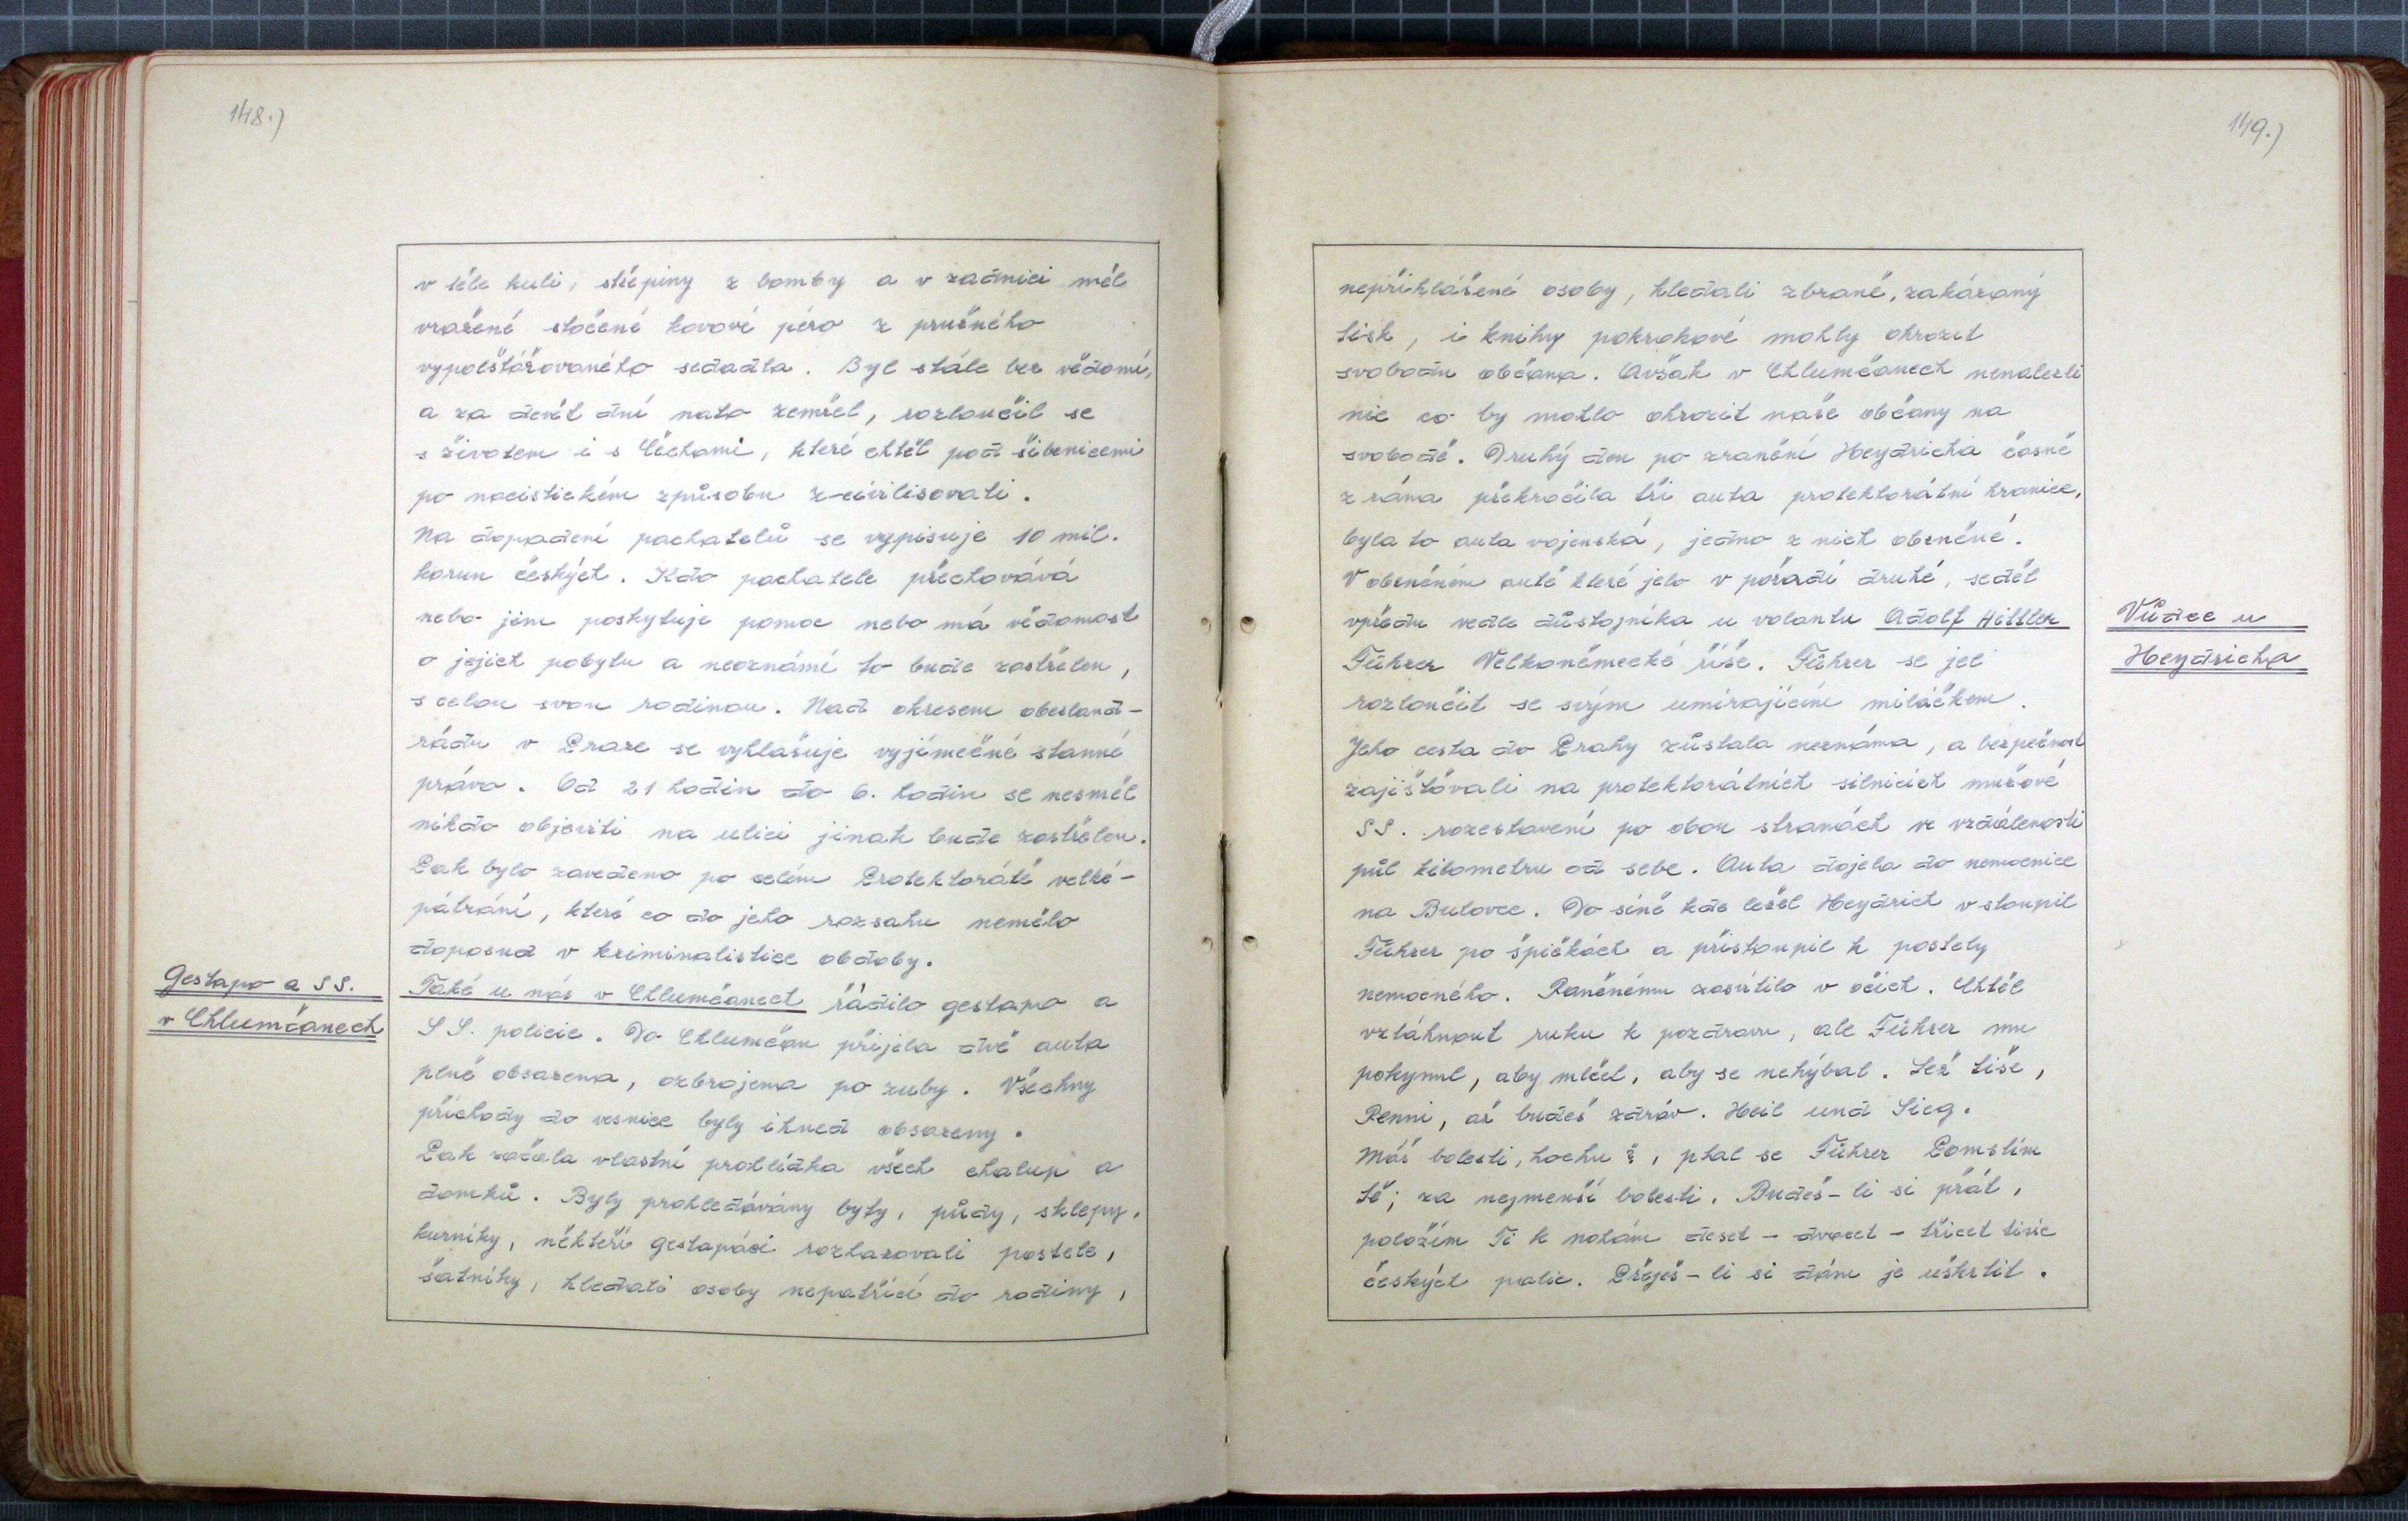 148.)
v těle kuli, střepiny z bomby a v zadnici měl
vražené stočené kovové péro z pružného
vypolštářovaného sedadla. Byl stále bez vědomí,
a za devět dní nato zemřel, rozloučil se
s životem i s Čechami, které chtěl pod šibenicemi
po nacistickém způsobu z-civilisovati.
Na dopadení pachatelů se vypisuje 10 mil.
korun českých. Kdo pachatele přechovává
nebo jim poskytuje pomoc nebo má vědomost
o jejich pobytu a neoznámí to bude zastřelen,
s celou svou rodinou. Nad okresem oberland-
rádu v Praze se vyhlašuje vyjímečné stanné
právo. Od 21 hodin do 6. hodin se nesměl
nikdo objeviti na ulici jinak bude zastřelen.
Pak bylo zavedeno po celém Protektorátě velké-
pátrání, které co do jeho rozsahu nemělo
doposud v kriminalistice obdoby.
Gestapo a SS.
v Chlumčanech
Také u nás v Chlumčanech řádilo gestapo a
SS. policie. Do Chlumčan přijela dvě auta
plně obsazena, ozbrojena po zuby. Všechny
příchody do vesnice byly ihned obsazeny.
Pak začala vlastní prohlídka všech chalup a
domků. Byly prohledávány byty, půdy, sklepy,
kurníky, někteří gestapáci rozhazovali postele,
šatníky, hledali osoby nepatřící do rodiny,
149.)
nepřihlášené osoby, hledali zbraně, zakázaný
tisk, i knihy pokrokové mohly ohrozit
svobodu občana. Avšak v Chlumčanech nenalezli
nic co by mohlo ohrozit naše občany na
svobodě. Druhý den po zranění Heydricha časně
z rána překročila tři auta protektorátní hranice,
byla to auta vojenská, jedno z nich obrněné.
V obrněném autě které jelo v pořadí druhé, seděl
vpředu vedle důstojníka u volantu Adolf Hittler
Führer Velkoněmecké říše. Führer se jel
Vůdce u
Heydricha
rozloučit se svým umírajícím miláčkem.
Jeho cesta do Prahy zůstala neznáma, a bezpečnost
zajišťovali na protektorátních silnicích mužové
SS. rozestavení po obou stranách ve vzdálenosti
půl kilometru od sebe. Auta dojela do nemocnice
na Bulovce. Do síně kde ležel Heydrich vstoupil
Führer po špičkách a přistoupil k postely
nemocného. Raněnému zasvítilo v očích. Chtěl
vztáhnout ruku k pozdravu, ale Führer mu
pokynul, aby mlčel, aby se nehýbal. Lež tiše,
Renni, ať budeš zdráv. Heil und Sieg.
Máš bolesti, hochu?, ptal se Führer Pomstím
tě; za nejmenší bolesti. Budeš-li si přát,
položím Ti k nohám deset - dvacet - třicet tisíc
českých palic. Přeješ-li si dám je uškrtit.